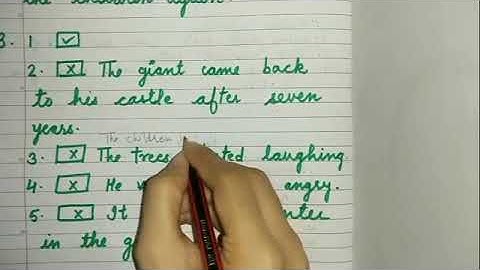 3. 1
2. x The giant came back
to his castle after seven
years.
The children
3. x The trees laughing.
4. x He angry.
5. x It
in the